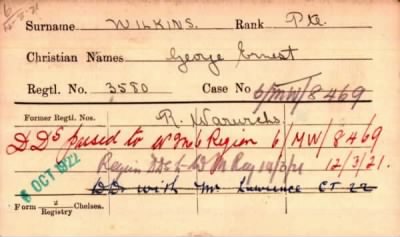 6
12-3-21
Surname WILKINS. Rank Pte.
Christian Names George Ernest
Regtl. No. 3580 Case No 6/MW/8469
Former Regtl. Nos. R. Warwicks
DDs passed to No 6 Region 6/MW/8469
Region 12/3/21.
6 OCT 1922
DD with Mr Lawrence CT 22
Form 2 Registry Chelsea.